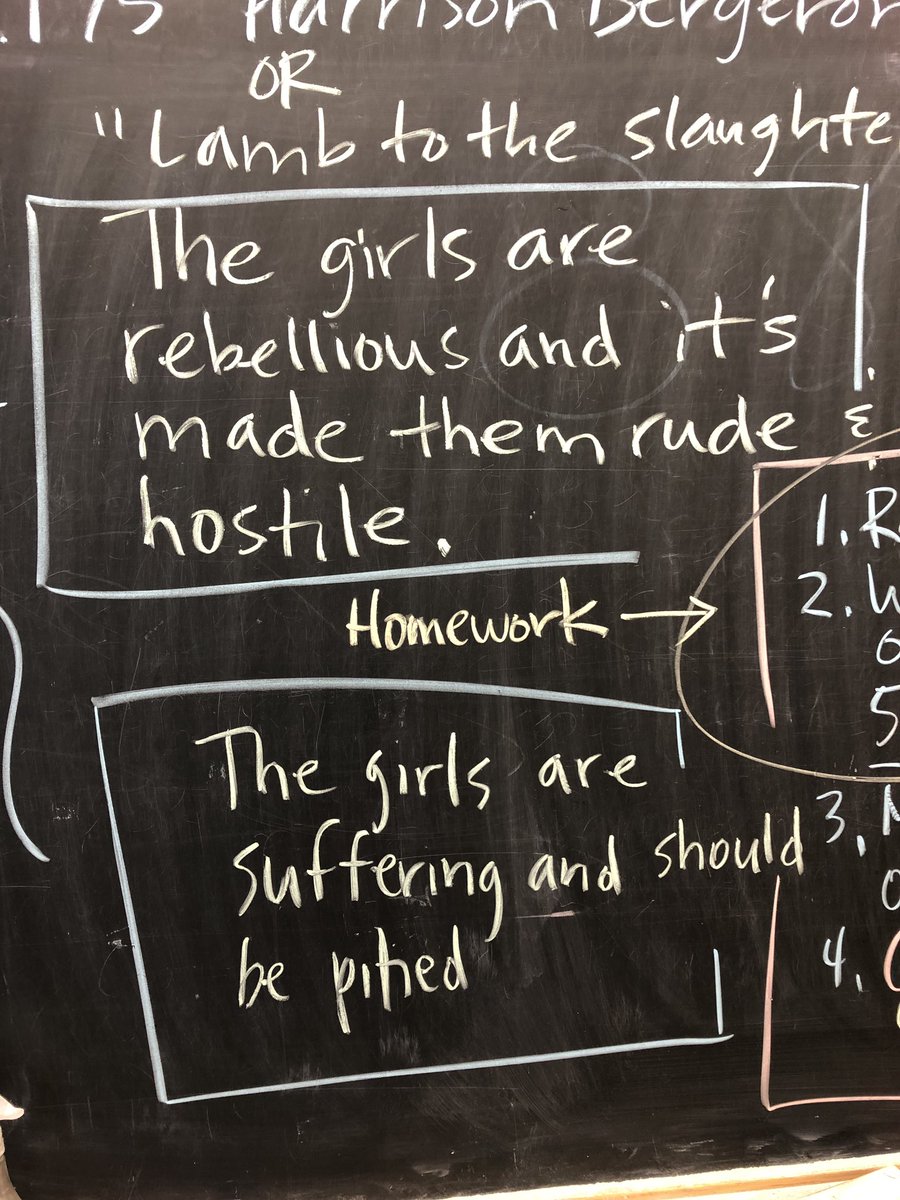 Harrison Bergeron
OR
"Lamb to the slaughte
The girls are
rebellious and it's
made them rude &
hostile.
Homework →
1. R
2. W
5
The girls are
suffering and should
3.
be pitied
4.